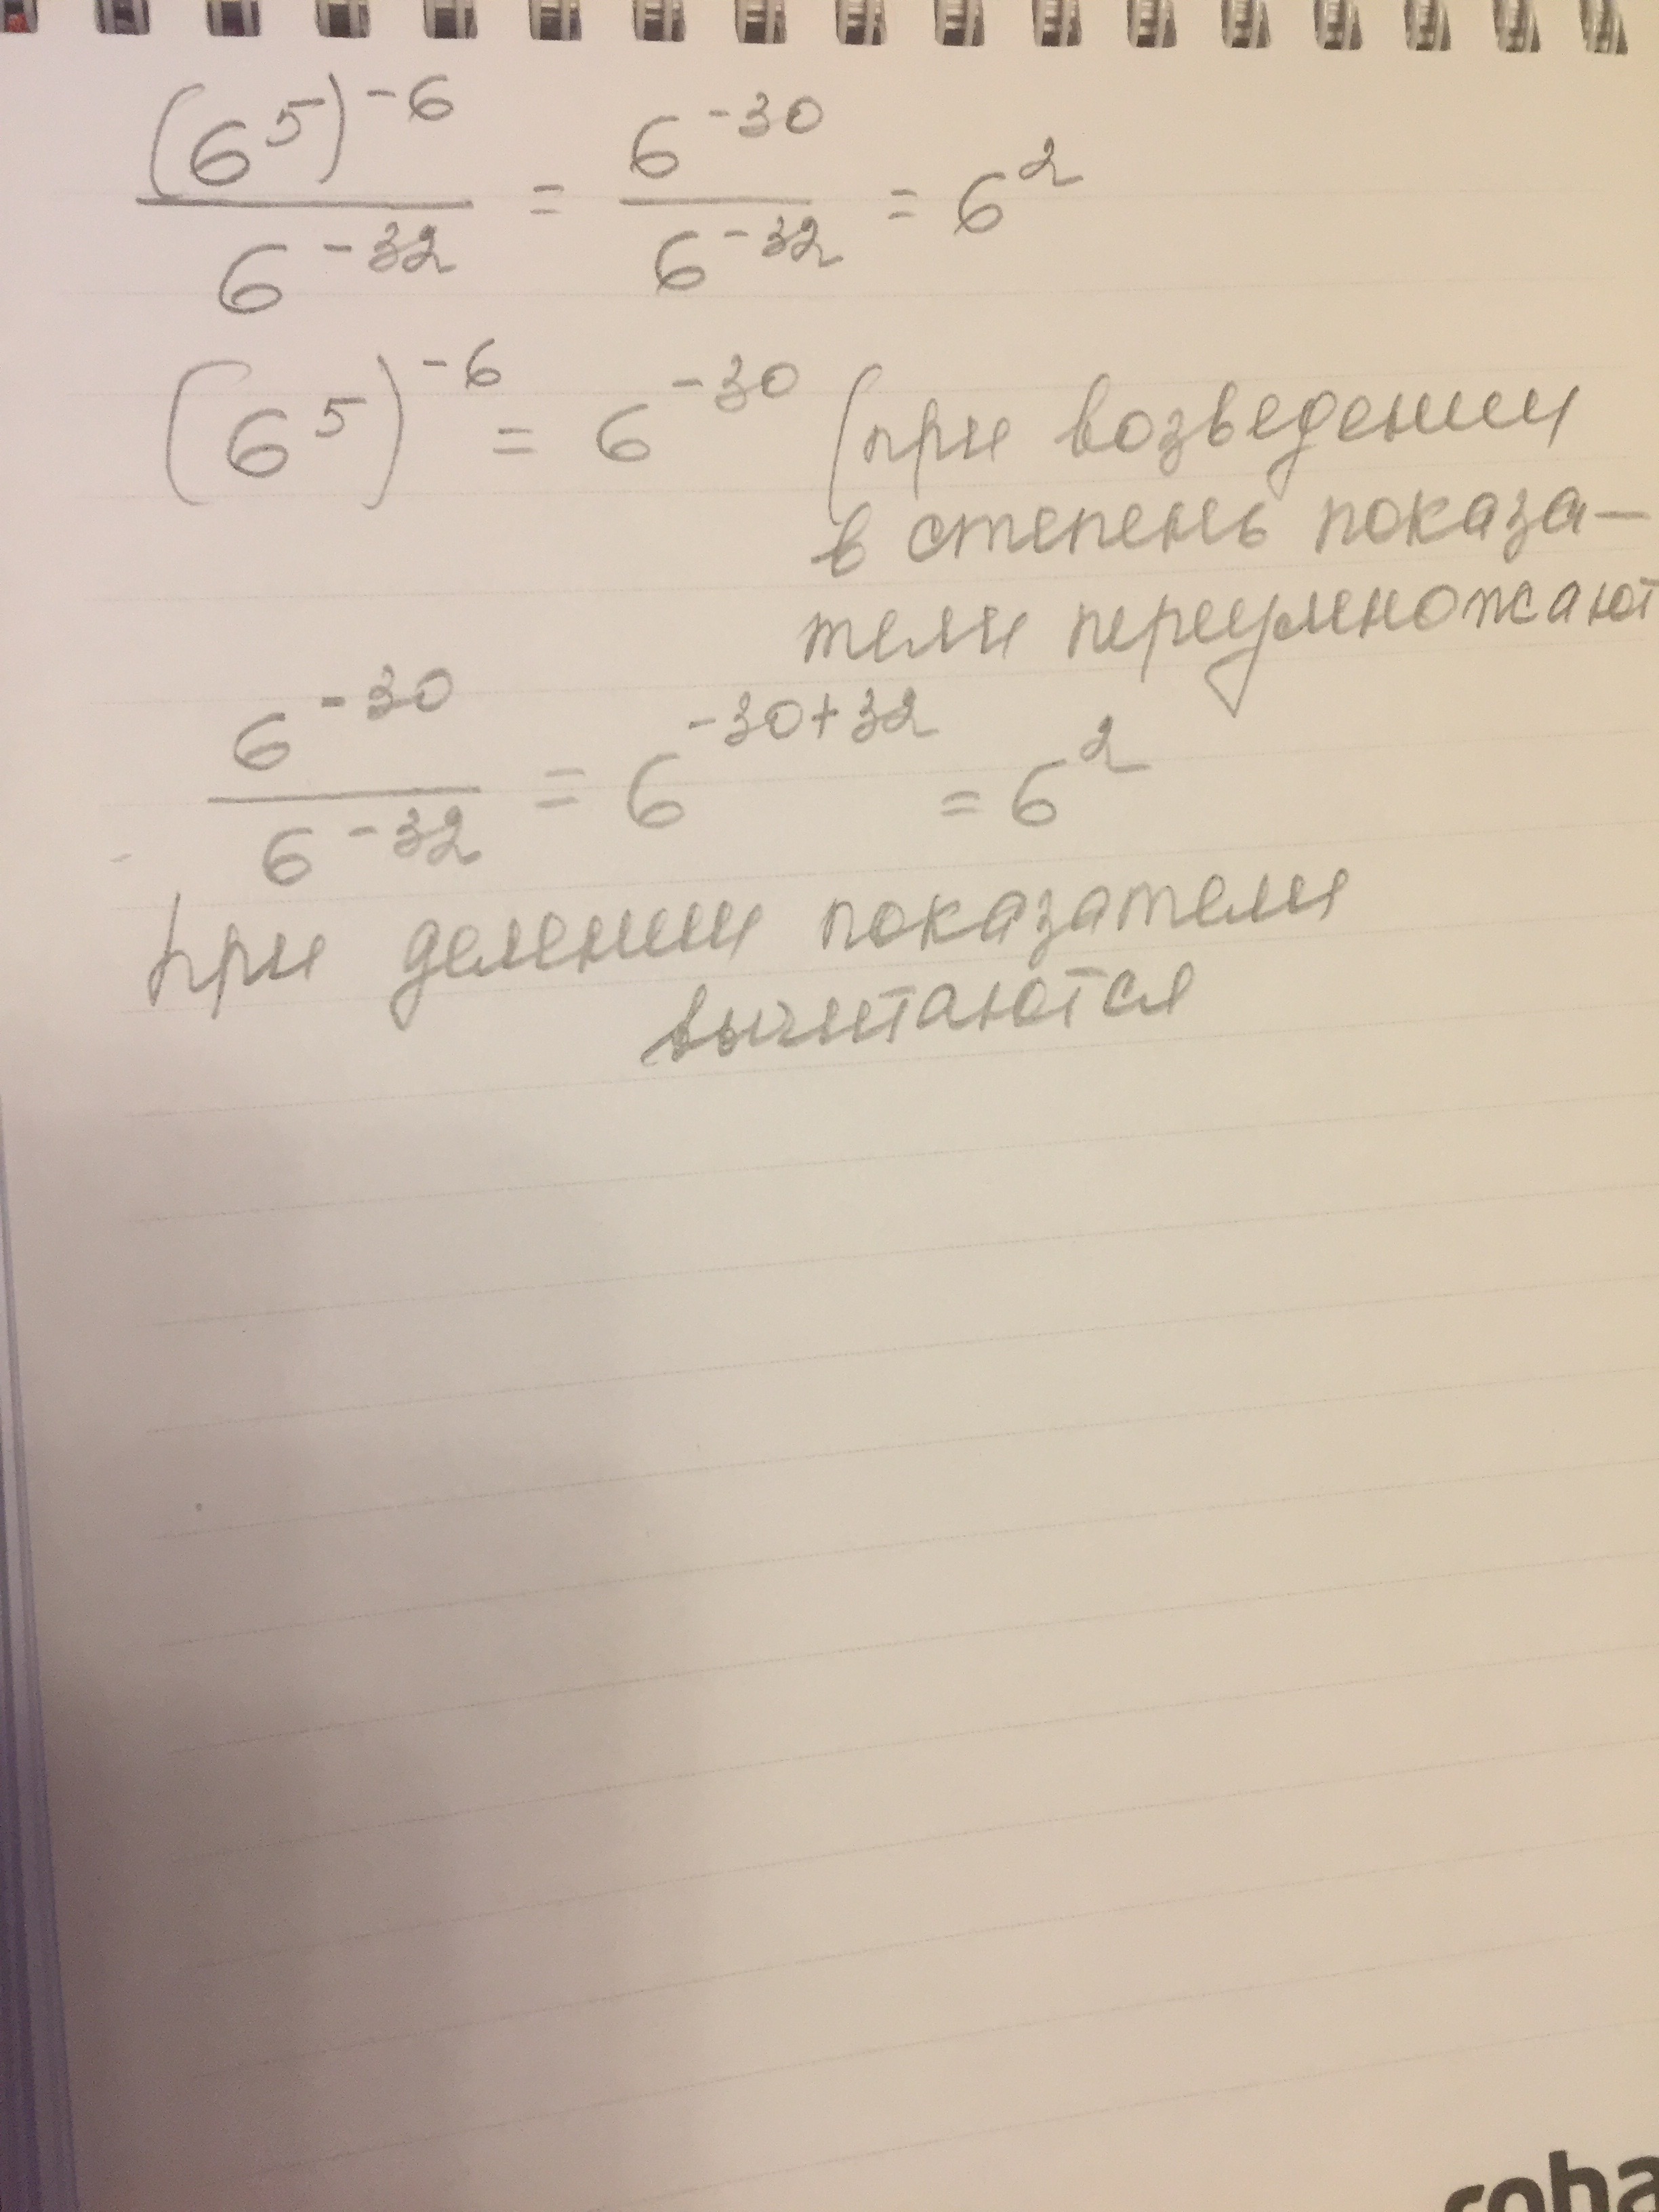 (6^5)^-6 / 6^-32 = 6^-30 / 6^-32 = 6^2
(6^5)^-6 = 6^-30 (при возведении
в степень показа-
тели перемножают
6^-30 / 6^-32 = 6^-30+32 = 6^2
при делении показатели
вычитаются